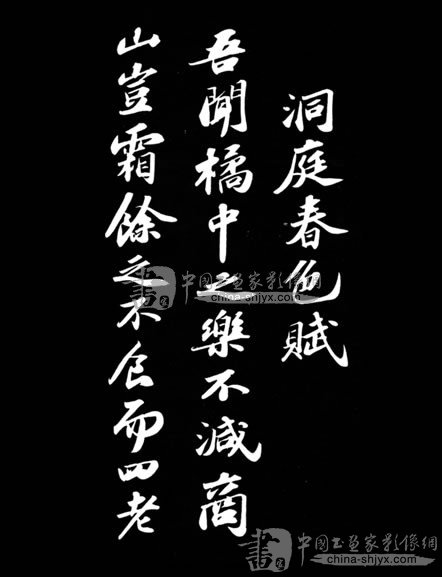 洞庭春色賦
吾聞橘中之樂不減商
山豈霜餘之不食而四老
書 中国书画家影像網
china-shjyx.com
書 中国书画家影像網
www.china-shjyx.com